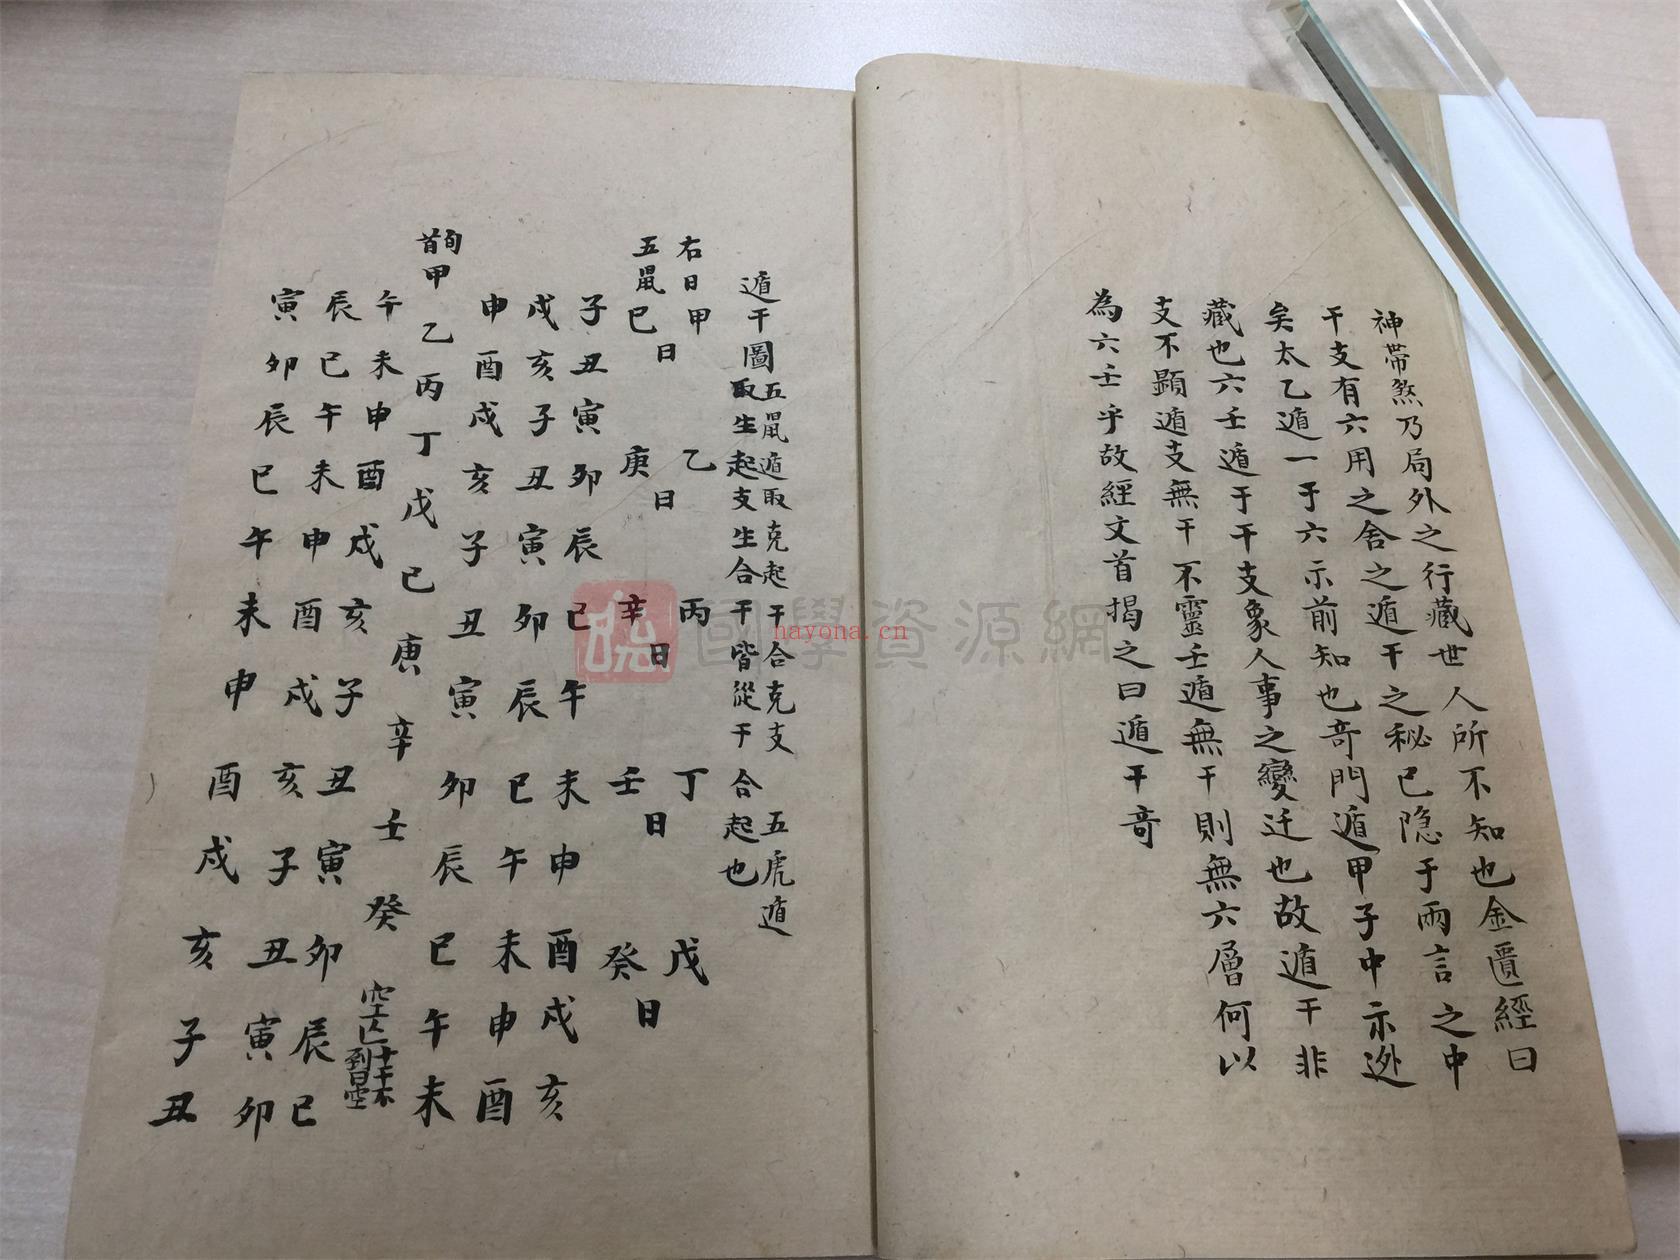 神帶煞乃局外之行藏世人所不知也金匱經曰
干支有六用之舍之遁干之秘已隐于兩言之中
矣太乙遁一于六示前知也奇門遁甲子中示逊
藏也六壬遁于干支象人事之變迁也故遁干非
支不顕遁支無干不靈壬遁無干則無六層何以
為六壬乎故經文首揭之曰遁干奇
遁干圖 五鼠遁取克起干合克支 五虎遁
取生起支生合干皆從干合起也
右日 甲 乙 丙 丁 戊
日 日 日 日 日
五鼠 己 庚 辛 壬 癸
子丑寅卯辰巳午未申酉戌亥
戌亥子丑寅卯辰巳午未申酉
申酉戌亥子丑寅卯辰巳午未
旬首 甲乙丙丁戊己庚辛壬癸 空亡 十干不到曰空
午未申酉戌亥子丑寅卯辰巳
辰巳午未申酉戌亥子丑寅卯
寅卯辰巳午未申酉戌亥子丑
國學資源網
hayona.cn